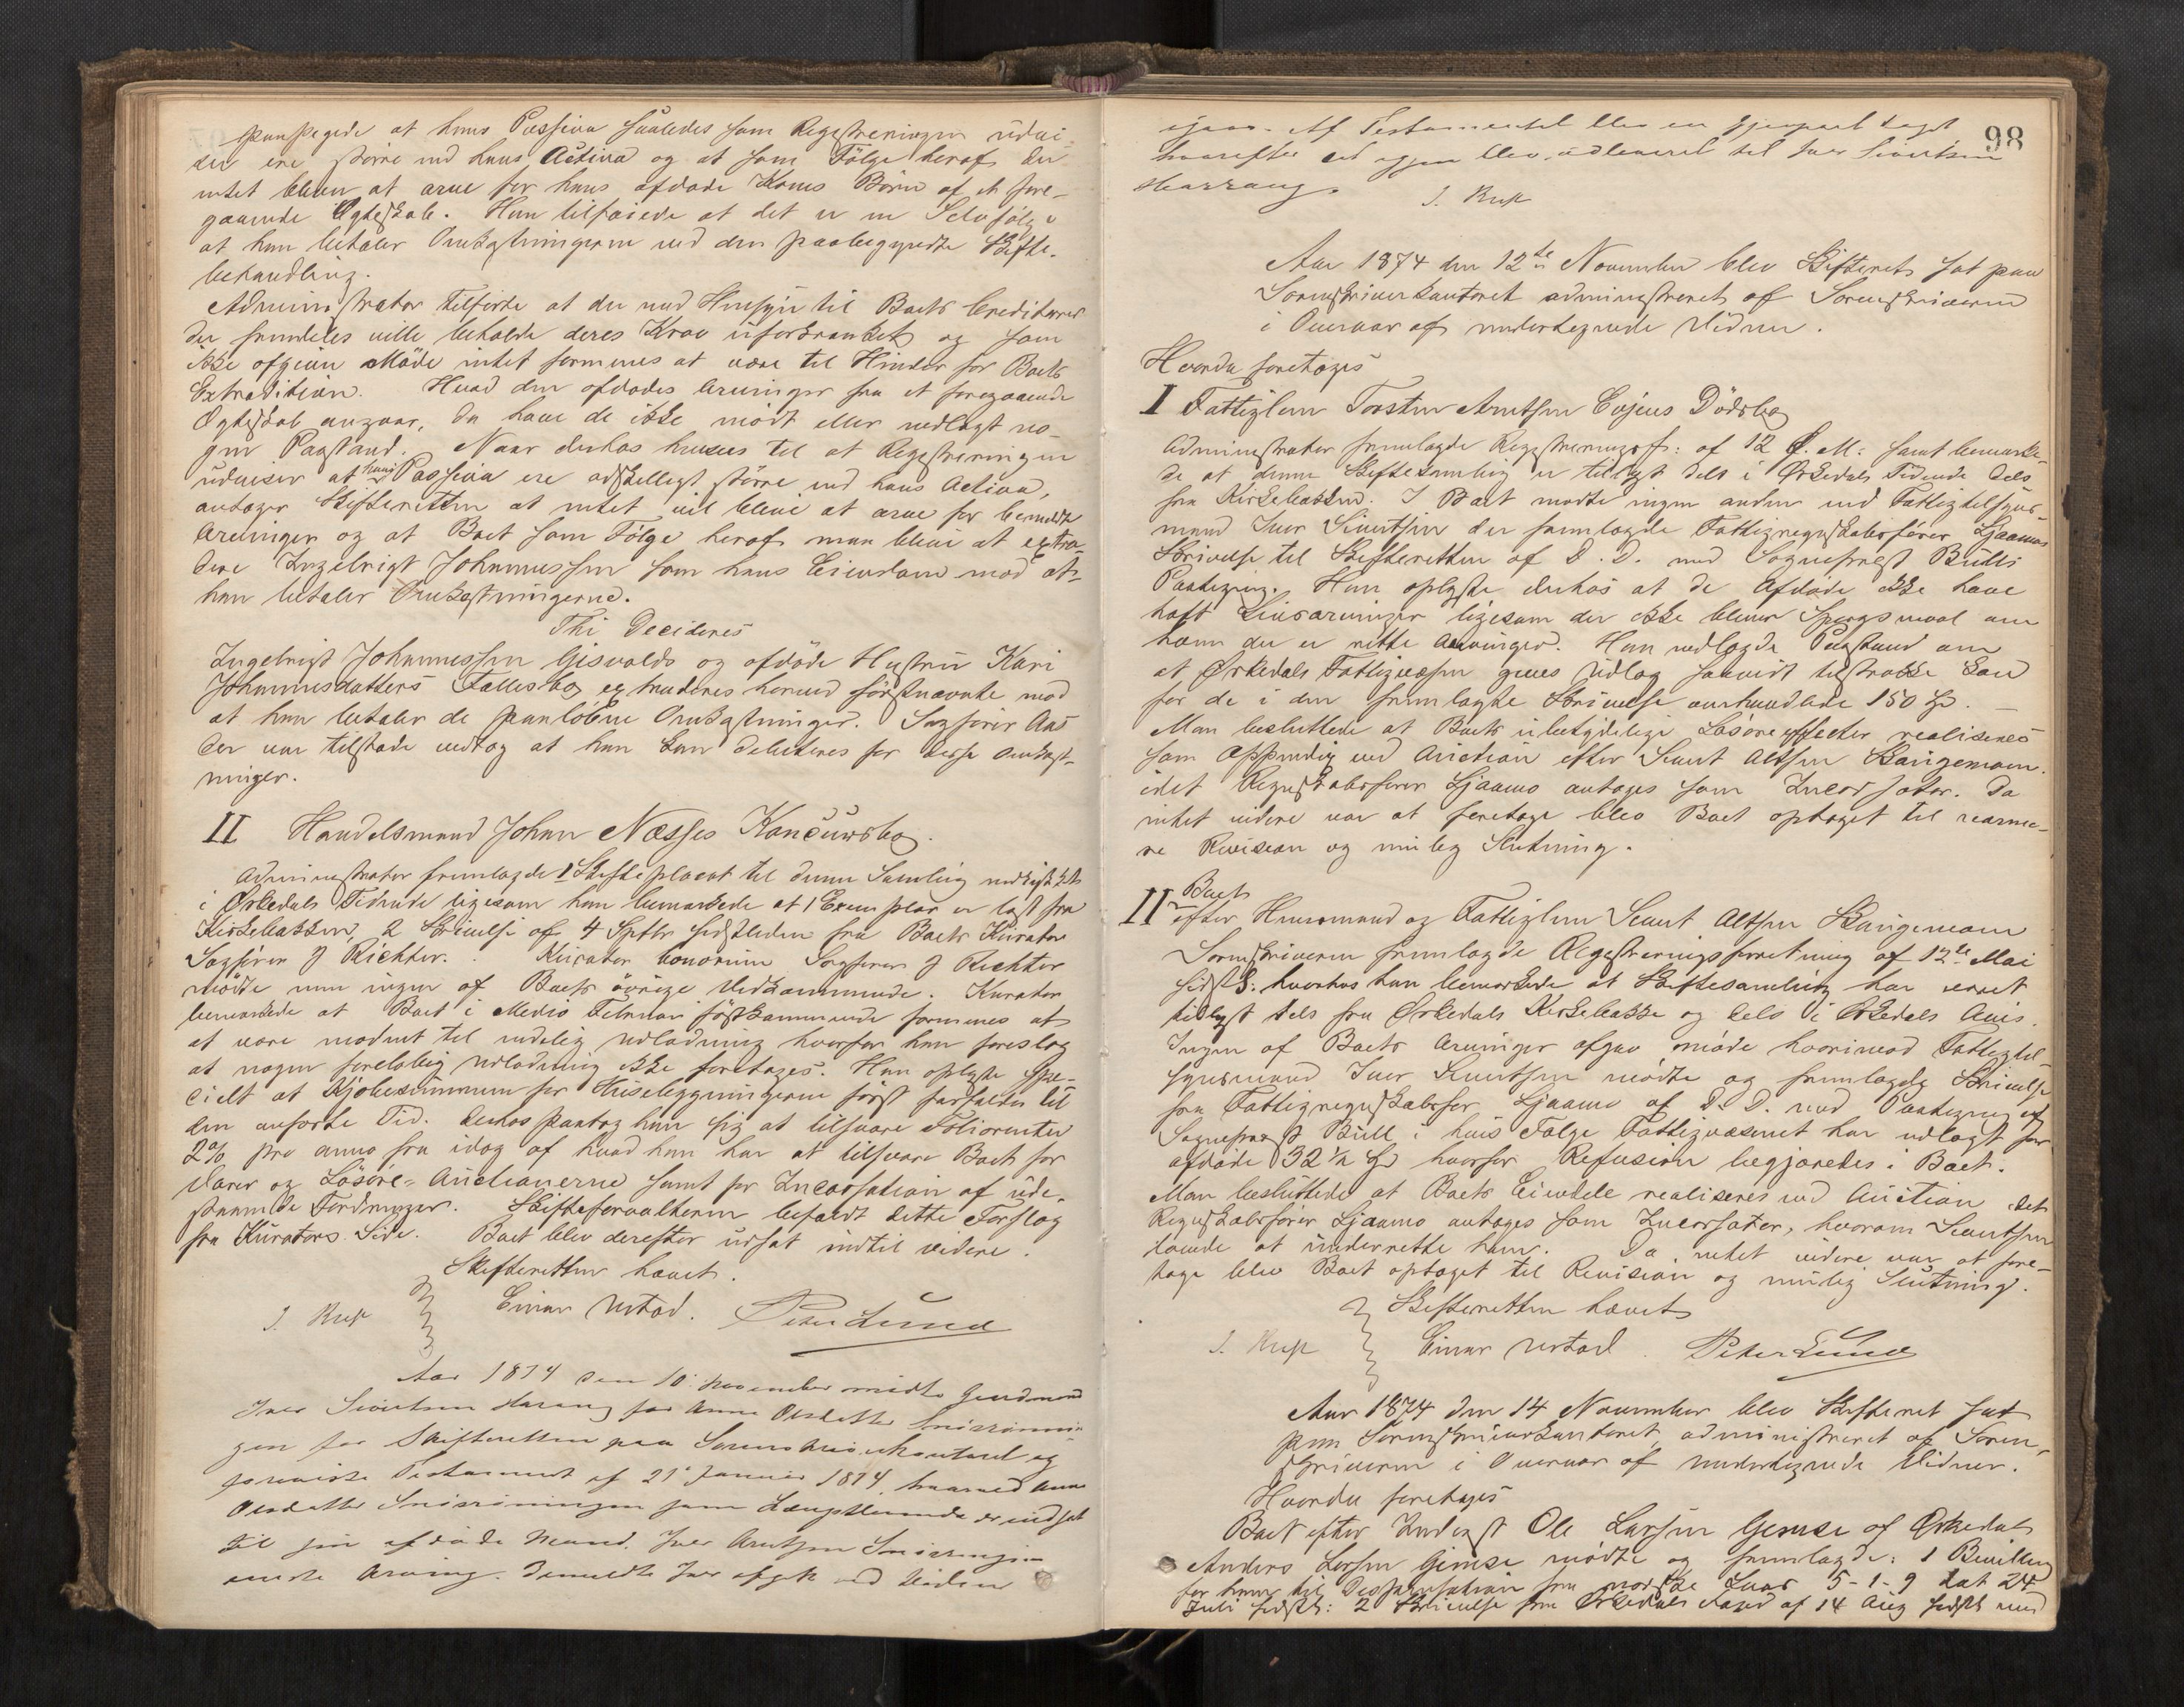 paapegede at hans Passiva saaledes som Registreringen udvi-
ser ere større end hans Activa og at som Følge heraf der
intet bliver at arve for hans afdøde Kones Børn af et fore-
gaaende Ægteskab. Han tilføiede at det er en Selvfølge
at han betaler Omkostningerne ved den paabegyndte Skifte-
behandling.
Administrator tilførte at der med Hensyn til Boets Creditorer
der fremdeles ville beholde deres Krav uforkrænket og som
ikke afgive Møde intet formenes at være til Hinder for Boets
Extradition. Hvad den afdødes Arvinger fra et foregaaende
Ægteskab angaar, da have de ikke mødt eller nedlagt no-
gen Paastand. Naar derhos henses til at Registreringen
udviser at hans Passiva ere adskelligt større end hans Activa,
antager Skifteretten at intet vil blive at arve for bemeldte
Arvinger og at Boet som Følge heraf maa blive at extra-
dere Ingebrigt Johannessen som hans Eiendom mod at
han betaler Omkostningerne.
Thi Decideres
Ingebrigt Johannessen Gisvolds og afdøde Hustru Kari
Johannesdatters Fællesbo extraderes herved førstnævnte mod
at han betaler de paaløbne Omkostninger. Sagfører Aas
der var tilstede vedtog at han kan debiteres for disse Omkost-
ninger.
II Handelsmand Johan Næsses Koncursbo.
Administrator fremlagde 1 Skifteplacat til denne Samling
i Orkedals Tidende ligesom han bemærkede at 1 Exemplar er læst fra
Kirkebakken, 2 Skrivelse af 4 Septbr sidstleden fra Boets Kurator
Sagfører J Richter. Kurator bonorum Sagfører J Richter
mødte men ingen af Boets øvrige Vedkommende. Kurator
bemærkede at Boet i Medio Februar førstkommende formenes at
at være modent til endelig Udlodning hvorfor han foreslog
at nogen foreløbig Udlodning ikke foretages. Han oplyste spe-
cielt at Kjøbesummen for Husebygningerne først forfalder til
den anførte Tid. Derhos paatog han sig at tilsvare Foliorenter
2% pro anno fra idag af hvad han har at tilsvare Boet for
Varer og Løsøre-Auctionerne samt for Incassation af ude-
staaende Fordringer. Skifteforvalteren bifaldt dette Forslag
fra Kurators Side. Boet blev derefter udsat indtil videre.
Skifteretten hævet.
J. Einar Ustad. Peter Lund
Aar 1874 den 10. November mødte Gaardmand
Iver Sivertsen for Anne Olsdatter
gen for Skifteretten paa Sorenskriverkontoret og
foreviste Testament af 21. Januar 1874, hvorved Anne
Olsdatter som Længstlevende er indsat
til sin afdøde Mand Iver Arntsen
eneste Arving. Bemeldte Iver afgik ved Døden
98
igaar. Af Testamentet blev en Gjenpart taget
hvorefter det igjen blev udleveret til Iver Sivertsen
J.
Aar 1874 den 12te November blev Skifteret sat paa
Sorenskriverkontoret administreret af Sorenskriveren
i Overvær af undertegnede Vidner.
Hvorda foretoges
I Fattiglem Torsten Arntsen Dødsbo
Administrator fremlagde Registreringsf: af 12 d. M: samt bemærke-
de at denne Skiftesamling er tillyst dels i Orkedals Tidende dels
fra Kirkebakken. I Boet mødte ingen anden end Fattigtilsyns-
mand Iver Sivertsen der fremlagde Fattigregnskabsfører Ljaamos
Skrivelse til Skifteretten af D. D. med Sognepræst Bulls
Paategning. Han oplyste derhos at de Afdøde ikke have
havt Livsarvinger ligesom der ikke bliver Spørgsmaal om
hvem der er rette Arvinger. Han nedlagde Paastand om
at Orkedals Fattigvæsen gives Udlag saavidt tilstrække kan
for de i den fremlagte Skrivelse omhandlede 150 Spd.
Man besluttede at Boets ubetydelige Løsøreeffecter realiseres
som Appendix ved Auction efter Sivert Altsen Skaugemoen
idet Regnskabsfører Ljaamo antages som Incassator. Da
intet videre var at foretage blev Boet optaget til nærme-
re Revision og mulig Slutning.
II Boet
efter Huusmand og Fattiglem Sivert Altsen Skaugemoen
Sorenskriveren fremlagde Registreringsforretning af 12te Mai
sidstl. hvorhos han bemærkede at Skiftesamling har været
tillyst dels fra Orkedals Kirkebakke og dels i Orkedals Avis.
Ingen af Boets Arvinger afgav møde hvorimod Fattigtil-
synsmand Iver Sivertsen mødte og fremlagde Skrivelse
fra Fattigregnskabsfør Ljaamo af D. D. med Paategning af
Sognepræst Bull i hvis Følge Fattigvæsenet har udlagt for
afdøde 32 ½ Spd hvorfor Refusion begjæredes i Boet.
Man besluttede at Boets Eiendele realiseres ved Auction idet
Regnskabsfører Ljaamo antages som Incassator, hvorom Sivertsen
lovede at underrette ham. Da intet videre var at fore-
tage blev Boet optaget til Revision og mulig Slutning.
Skifteretten hævet
J. Einar Ustad. Peter Lund
Aar 1874 den 14 November blev Skifteret sat
paa Sorenskriverkontoret, administreret af Soren-
skriveren i Overvær af undertegnede Vidner.
Hvorda foretoges
Boet efter Inderst Ole Larsen Gimse af Orkedal
Anders Larsen Gimse mødte og fremlagde: 1 Bevilling
for ham til Dispensation fra norske Lovs 5-1-9 dat 24
Juli sidstl: 2 Skrivelse fra Orkedals Foged af 14 Aug sidstl med